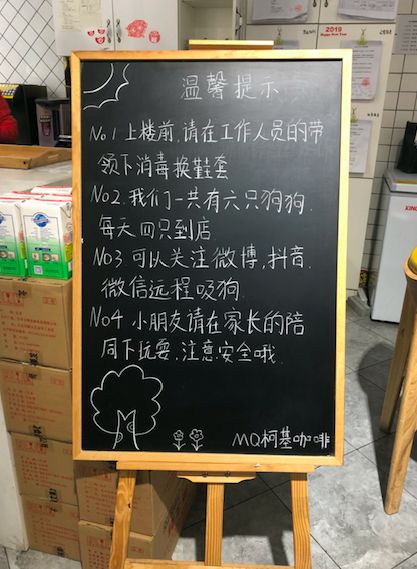 2019
温馨提示
No1 上楼前,请在工作人员的带
领下消毒换鞋套
No2.我们一共有六只狗狗.
每天四只到店
No3 可以关注微博,抖音.
微信远程吸狗.
No4 小朋友请在家长的陪
同下玩耍,注意安全哦.
MQ柯基咖啡